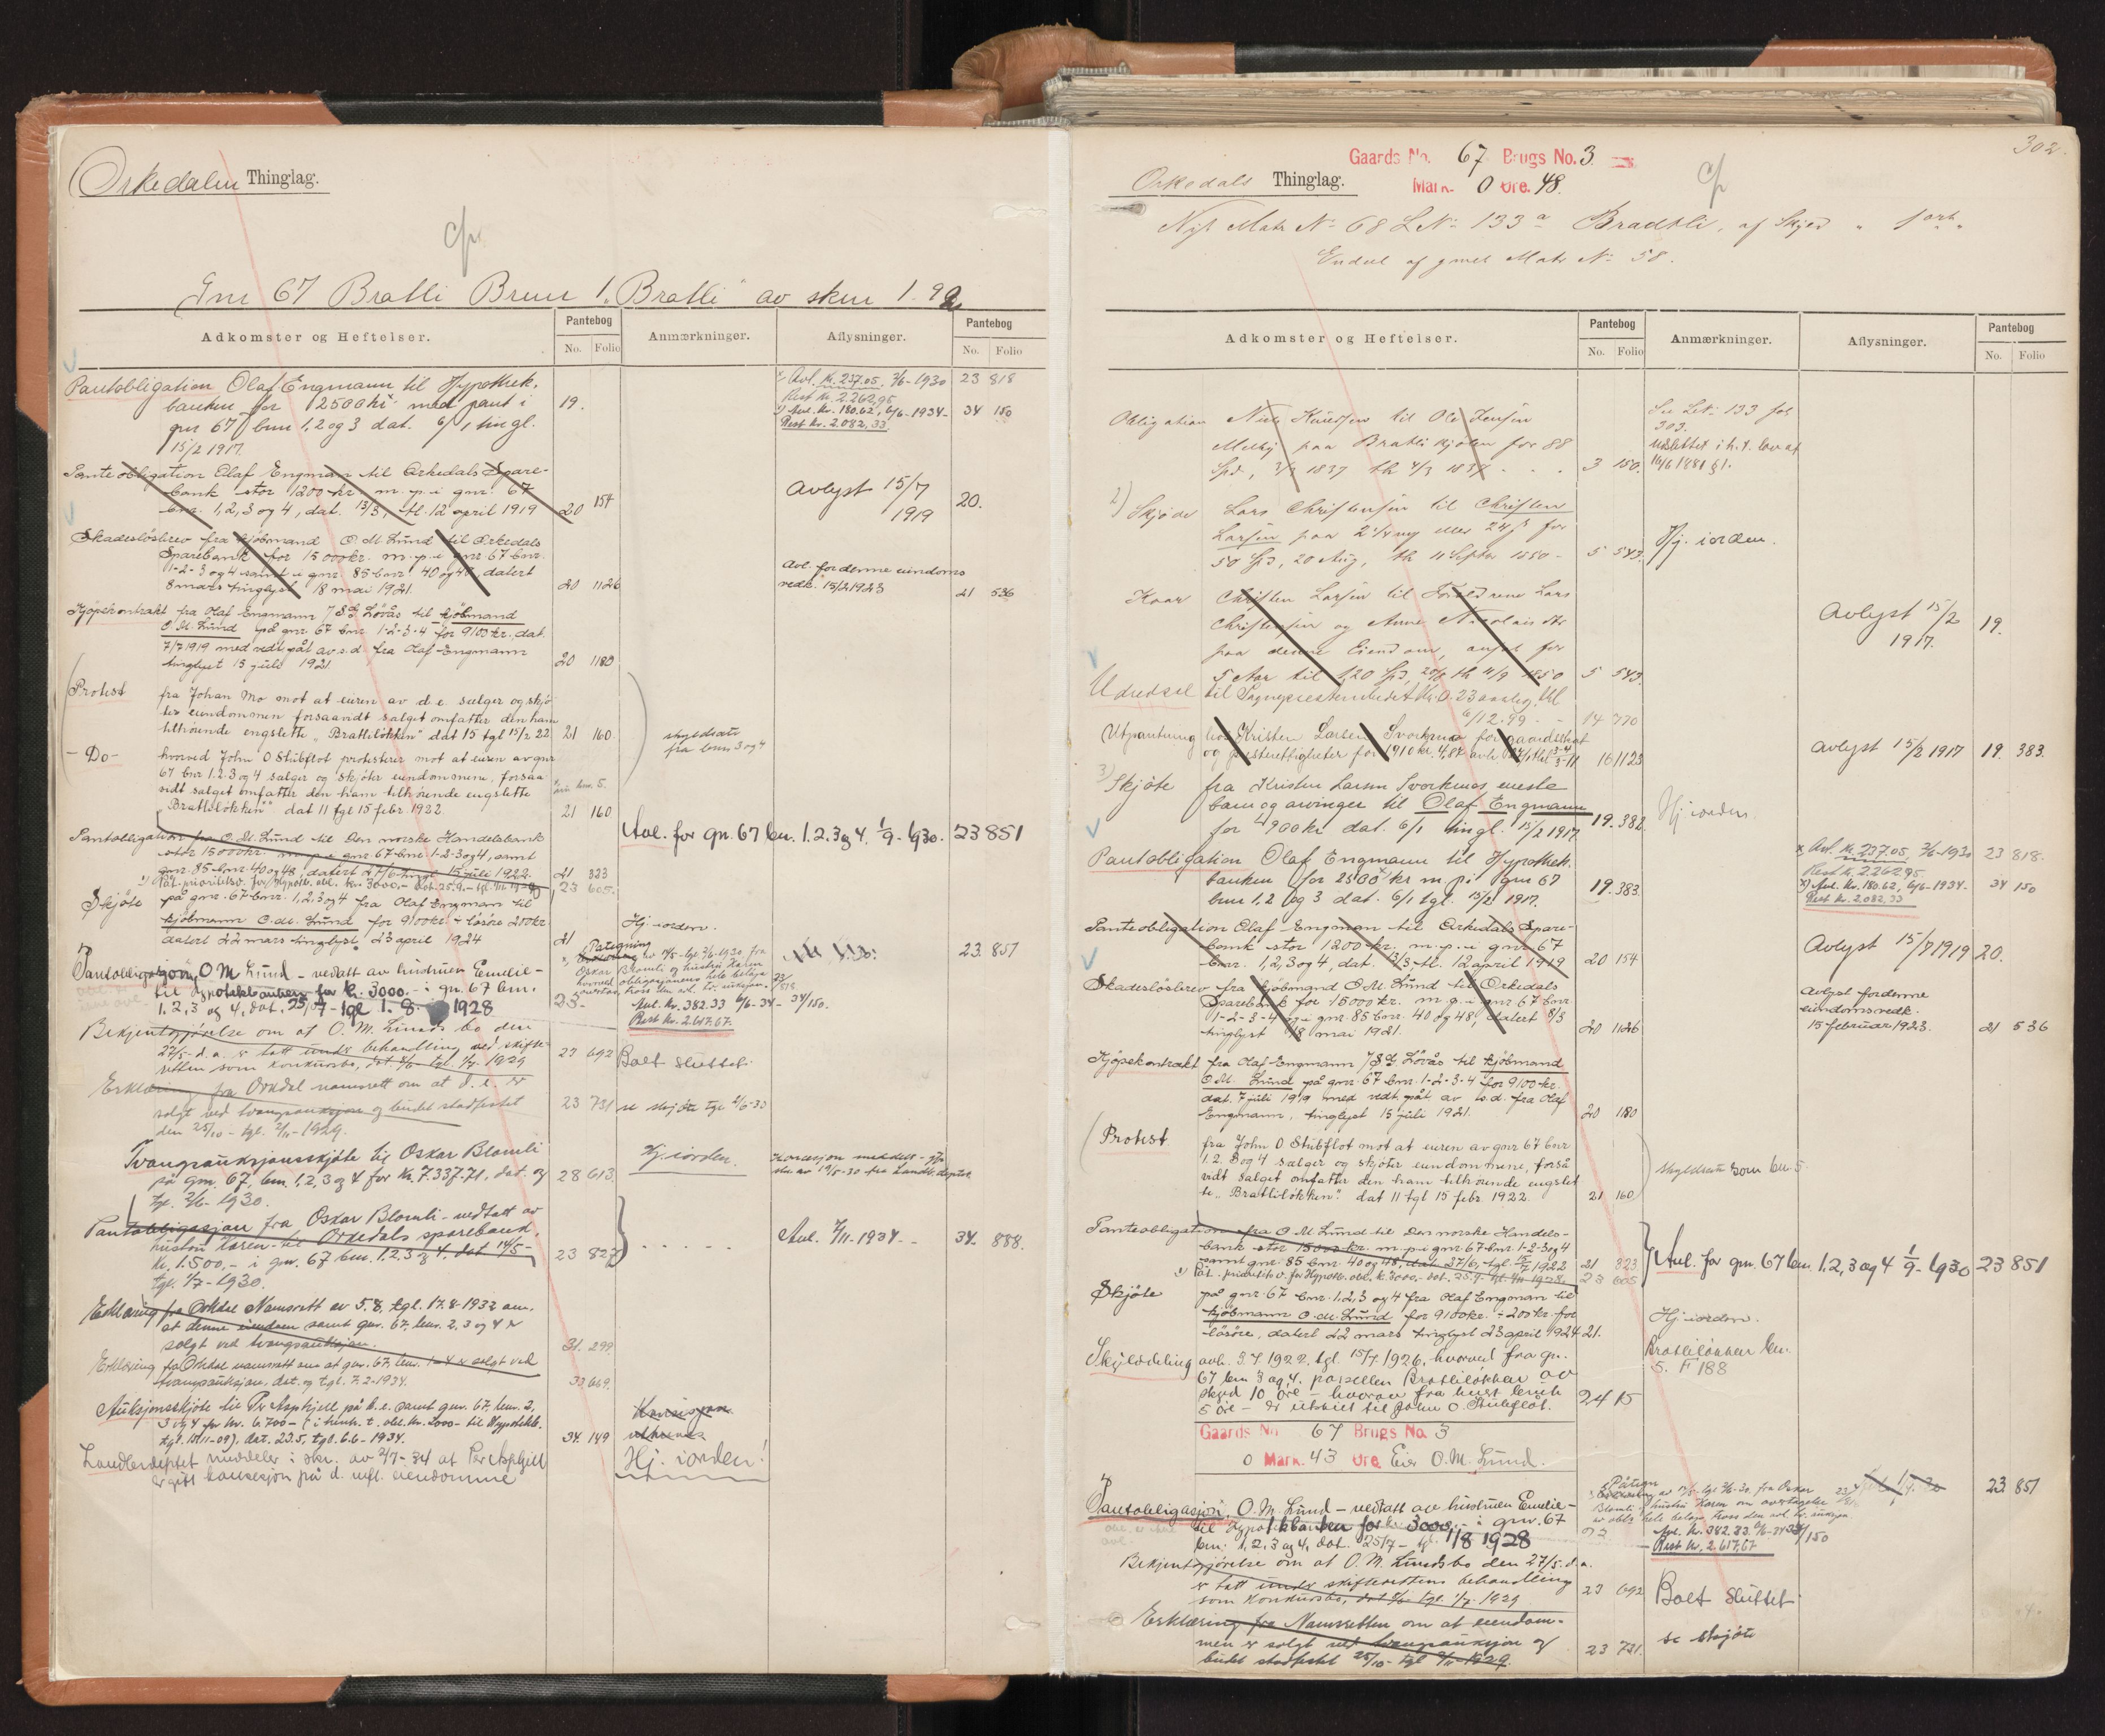 Orkedalen Thinglag.
Gnr 67 Bratli Brnr 1 „Bratli" av skm 1.92
Adkomster og Heftelser.
Pantebog
No. Folio
Anmærkninger.
Aflysninger.
Pantebog
No. Folio
Pantobligation Olaf Engmann til Hypothek.
banken for 2500 kr med pant i
gnr 67 bnr 1,2 og 3 dat. 6/1 tingl.
15/2 1917.
19.
Avl. Kr. 237.05. 2/6-1930 23 818
Rest Kr. 2.262,95
Avl. Kr. 180.62, 6/6-1934- 34 150
Rest kr. 2.082,33.
Panteobligation Olaf Engman til Orkedals Spare-
bank stor 1200 kr m. p. i gnr. 67
bnr. 1,2,3 og 4, dat. 13/3, tl. 12 april 1919 20 154
Avlyst 15/7
1919
20.
Skadesløsbrev fra kjøbmand O. M. Lund til Orkedals
Sparebank for 15 000 kr. m. p. i gnr 67 bnr.
1-2-3 og 4 samt i gnr. 85 bnr. 40 og 48, datert
8 mars tinglyst 18 mai 1921. 20 1126
Avl. for denne eiendoms
vedk. 15/2 1923 21 536
Kjøpekontrakt fra Olaf Engmann / S. L. Løvås til kjøbmand
O. M. Lund på gnr. 67 bnr. 1-2-3-4 for 9100 kr. dat.
7/7 1919 med vedt. påt. av s.d. fra Olaf Engmann
tinglyst 15 juli 1921. 20 1180
Protest fra Johan Mo mot at eieren av d. e. sælger og skjø
ter eiendommen forsaavidt salget omfatter den ham
tilhørende engslette „Brattliløkken" dat 15 tgl 15/2 22 21 160
skyldsatt
fra bnr 3 og 4
- Do - hvorved John O Stubflot protesterer mot at eieren av gnr
67 bnr 1.2.3 og 4 sælger og skjøter eiendommene, forsaa
vidt salget omfatter den ham tilhørende engslette
„Brattliløkken" dat 11 tgl 15 febr. 1922. 21 160
Pantobligation fra O. M. Lund til Den norske Handelsbank
stor 15 000 kr. m. p. i gnr 67 bnr 1-2-3 og 4, samt
gnr. 85 bnr. 40 og 48, datert 27/6 tingl. 15 juli 1922. 21 323
Påt. prioritetsv. for Hypotb. obl. kr. 3000,- dat. 25.9.- tgl. 23 605.
Avl. for gn. 67 bn. 1. 2. 3 og 4. 1/9- 1930. 23 851
Skjøte på gnr. 67 bnr. 1,2,3 og 4 fra Olaf Engman til
kjøbmann O. M. Lund for 9100 kr. ÷ løsøre 200 kr.
datert 22 mars tinglyst 23 april 1924 21
Hj. iorden.
Pantobligasjon, O M Lund - vedtatt av hustruen Emelie -
til Hypotekbanken for kr. 3000.- i gn. 67 bnr.
1. 2, 3 og 4, dat. 25/7 - tgl 1. 8. 1928 23-
Påtegning
Oskar Blomli og hustru Karen
23. 851
Avl. Kr. 382.33 6/6-34- 34/150.
Rest kr. 2.617.67.
Bekjentgjørelse om at O. M. Lunds bo den
27/5- d.a. er tatt under behandling ved skifte-
retten som konkursbo, dat. tgl. 1/7- 1929 23 692
Boet sluttet.
Erklæring fra Orkdal namsrett om at d. e. er
solgt ved tvangsauksjon og budet stadfestet
den 25/10- tgl. 2/11- 1929. 23 731
se skjøte tgl 2/6-30
Tvangsauksjonsskjøte til Oskar Blomli
på gnr. 67, bnr. 1, 2, 3 og 4 for Kr. 7.337.71. dat. og
tgl. 2/6- 1930. 28 613.
Hj. iorden.
Pantobligasjon fra Oskar Blomli - vedtatt av
hustru Karen - til Orkedals sparebank,
Kr. 1.500,- i gnr. 67 bnr. 1. 2. 3 og 4. dat 14/5-
tgl. 1/7- 1930. 23 827
Avl. 7/11-1934.- 34- 888.
Erklæring fra Orkdal Namsrett av 5.8, tgl. 17.8-1932 om.
at denne eiendom samt gnr. 67. bnr. 2, 3 og 4 er
solgt ved tvangsauksjon. 31. 299
Erklæring fra Orkdal namsrett om at gnr. 67. bnr. 1-4 er solgt ved
tvangsauksjon, dat. og tgl. 7.2-1934. 33 669.
Auksjonsskjøte til Pr Asphjell på d. e. samt gnr. 67. bnr. 2,
3 og 4 for kr. 6.700-
dat. 23.5, tgl. 6.6-1934. 34. 149
Hj. iorden!
Landbrdeptet meddeler i skr. av 2/7-34 at Per Asphjell
er gitt konsesjon på d. nfl. eiendomme
302.
Gaards No. 67 Brugs No. 3
Mark. 0 Øre. 48.
Orkedals Thinglag.
Nyt Matr No 68 L No 133 a Bradtli, af Skyld " 1 ort "
Endel af gmel Matr No 58.
Adkomster og Heftelser.
Pantebog
No. Folio
Anmærkninger.
Aflysninger.
Pantebog
No. Folio
Obligation Niels Knudsen til Ole Jensen
Melby paa Bratli kjølen for 88
Spd, 3 150.
Se L No 133 fol
303.
Udslettet i h. t. lov af
16/6 1881 § 1.
2) Skjøde Lars Christensen til Christen
Larsen
50 Spd, 20 Aug, th 11 Septbr 1850 - 5 543.
Hj. iorden.
Kaar Christen Larsen til Forældrene Lars
Christensen og Anne Nicolais dtr
paa denne Eiendom, anført for
5 Aar til 120 Spd, 20/8 th 11/9 1850 5 543.
Avlyst 15/2
1917.
19.
Udredsel til Sognepresteembedet Kr. 0.23 aarlig. tbl
6/12. 99 - 14 770
Utpantning hos Kristen Larsen Svorkmo for gaardsskat
16 1123
Avlyst 15/2 1917 19. 383.
3) Skjøte fra Kristen Larsen Svorkmos eneste
barn og arvinger til Olaf Engmann
for 4900 kr. dat. 6/1 tingl. 15/2 1917. 19. 382
Hj iorden.
Pantobligation Olaf Engmann til Hypothek.
banken for 2500 kr m. p. i gnr 67
bnr 1, 2 og 3 dat. 6/1 tgl. 15/2 1917. 19. 383.
Avl. Kr. 237.05, 2/6-1930 23 818.
Rest Kr. 2262.95
Avl. Kr. 180.62, 6/6-1934- 34 150
Rest kr. 2.082,33
Panteobligation Olaf Engman til Orkedals Spare-
bank stor 1200 kr. m. p. i gnr 67
bnr. 1,2,3 og 4, dat. 13/3, tl. 12 april 1919 20 154
Avlyst 15/7 1919 20.
Skadesløsbrev fra kjøbmand O. M. Lund til Orkedals
Sparebank for 15000 kr. m. p. i gnr 67 bnr.
1-2-3-4 og i gnr. 85 bnr. 40 og 48, datert 8/3
tinglyst 18 mai 1921. 20 1126
Avlyst for denne
eiendoms vedk.
15 februar 1923. 21 536
Kjøpekontrakt fra Olaf Engmann / S. L. Løvås til kjøbmand
O. M. Lund på gnr. 67 bnr. 1-2-3-4 for 9100 kr.
dat. 7 juli 1919 med vedt. påt. av s.d. fra Olaf
Engmann, tinglyst 15 juli 1921. 20 1180
Protest fra John O Stubflot mot at eieren av gnr 67 bnr
1. 2. 3 og 4 sælger og skjøter eiendommene, forså
vidt salget omfatter den ham tilhørende engslet
te „Brattliløkken". dat 11 tgl 15 febr. 1922. 21 160
skyldsatt som bn. 5
Panteobligation fra O. M Lund til Den norske Handels-
bank stor 15000 kr. m. p. i gnr 67 bnr 1-2-3 og 4
samt gnr. 85 bnr 40 og 48, dat. 27/6, tgl. 15/7 1922 21 323
Påt. prioritetsv. for Hypotb. obl. kr. 3000,- dat. 25.9- 23 605
Avl. for gn. 67 bn. 1, 2, 3 og 4 1/9- 1930 23 851
Skjøte på gnr. 67 bnr. 1,2,3 og 4 fra Olaf Engman til
kjøbmann O. M. Lund for 9100 kr. ÷ 200 kr. for
løsøre, datert 22 mars tinglyst 23 april 1924 21.
Hj. iorden.
Skylddeling avh. 3. 7 1922. tgl. 15/7 1926, hvorved fra gn.
67 bnr 3 og 4. parsellen Brattliløkken av
skyld 10 øre - hvorav fra hvert bruk
5 øre - er utskilt til John O. Stubflot. 24 15
Brattliløkken bn.
5. F 188
Gaards No 67 Brugs No. 3
0 Mark. 43 Øre Eier O. M. Lund.
Pantobligasjon, O. M. Lund - vedtatt av hustruen Emelie -
til Hypotekbanken for kr. 3000,- i gnr. 67
bn: 1, 2, 3 og 4, dat. 25/7- tgl. 1/8 1928
23 851
Avl. Kr. 382.33. 6/6-34 34/150
Rest kr. 2.617,67
Bekjentgjørelse om at O. M. Lunds bo den 27/5- d.a.
er tatt under skifterettens behandling
som konkursbo, tgl. 1/7- 1929 23 692
Boet sluttet.
Erklæring fra Namsretten om at eiendom-
men er solgt ved tvangsauksjon og
budet stadfestet 25/10- tgl 2/11-1929. 23 731.
se skjøte